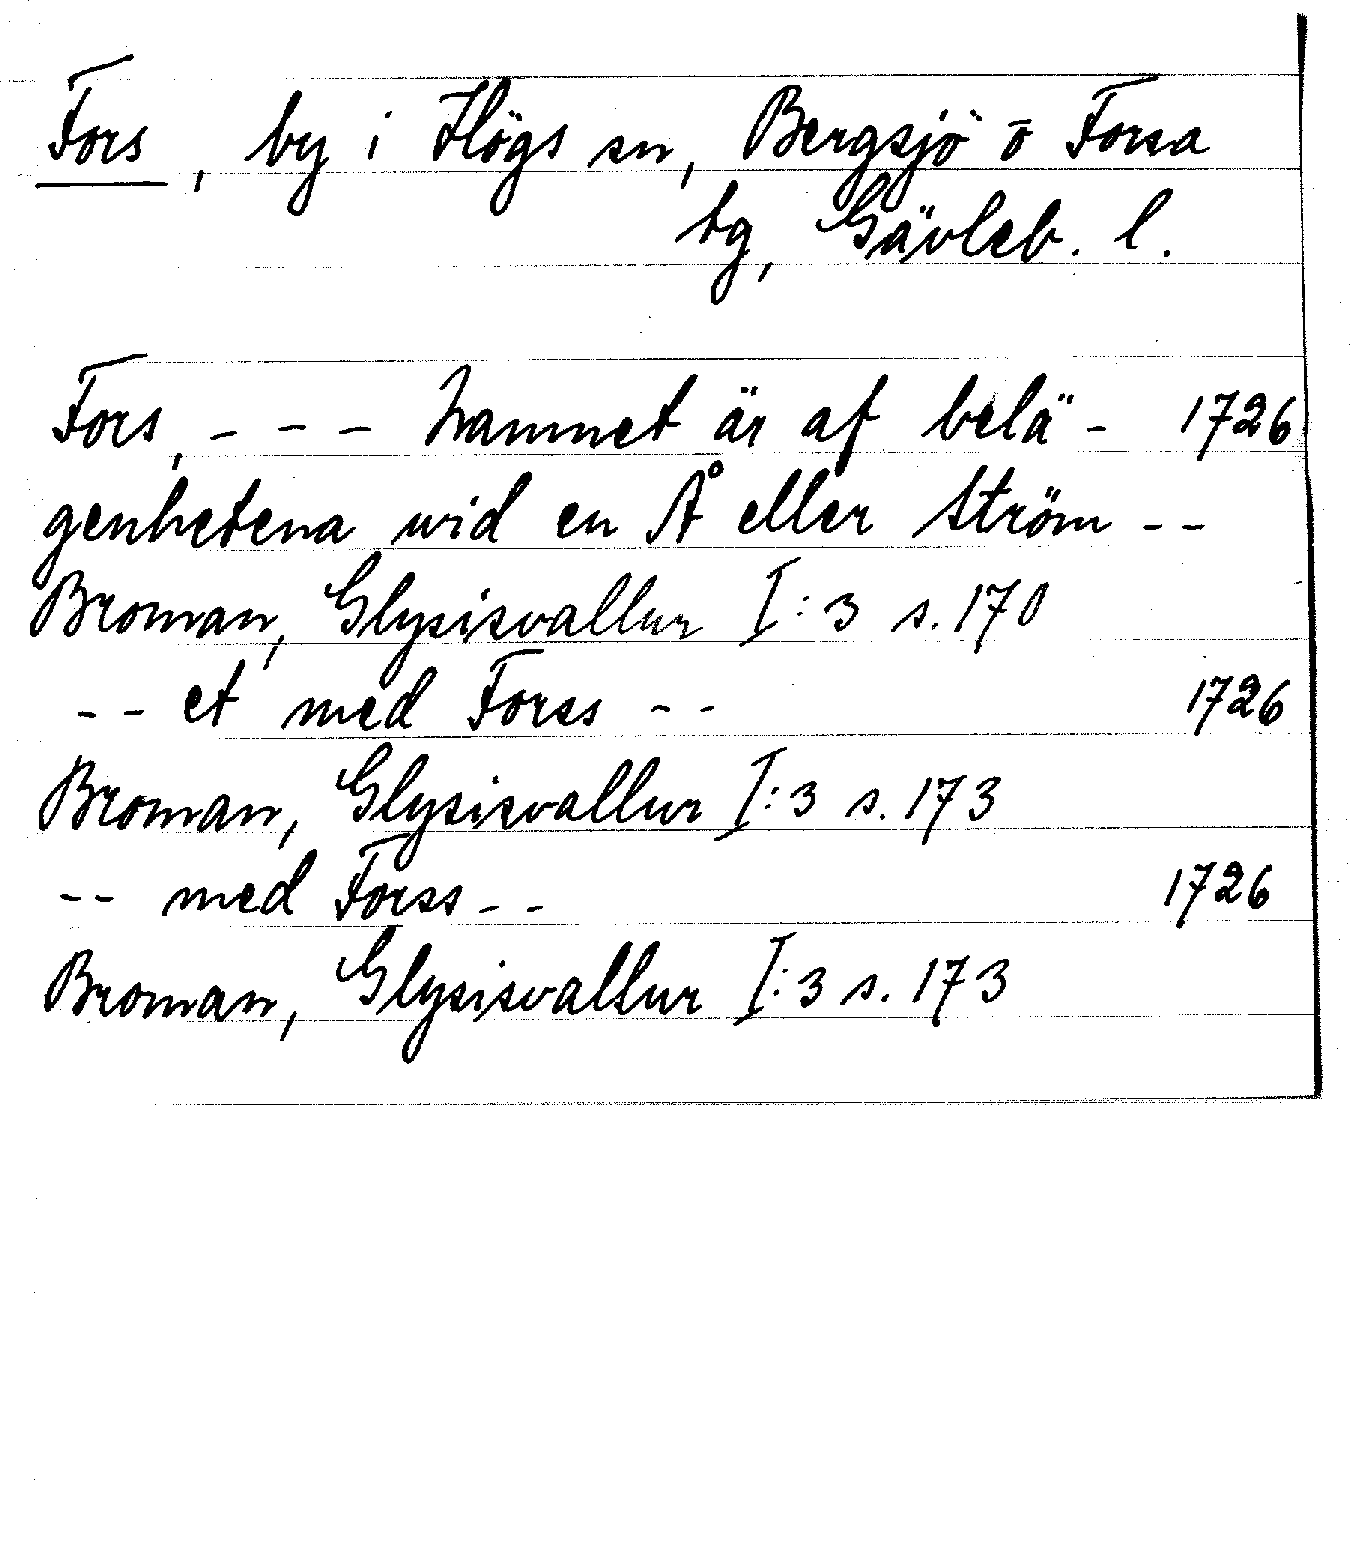 Fors, by i Högs sn, Bergsjö o Forsa
tg, Gävleb. l.
Fors, - - - namnet är af belä- 1726
genhetena wid en Å eller Ström - -
Broman, Glysisvallur I:3 s. 170
- - et med Forss - - 1726
Broman, Glysisvallur I:3 s. 173
- - med Forss - - 1726
Broman, Glysisvallur I:3 s. 173